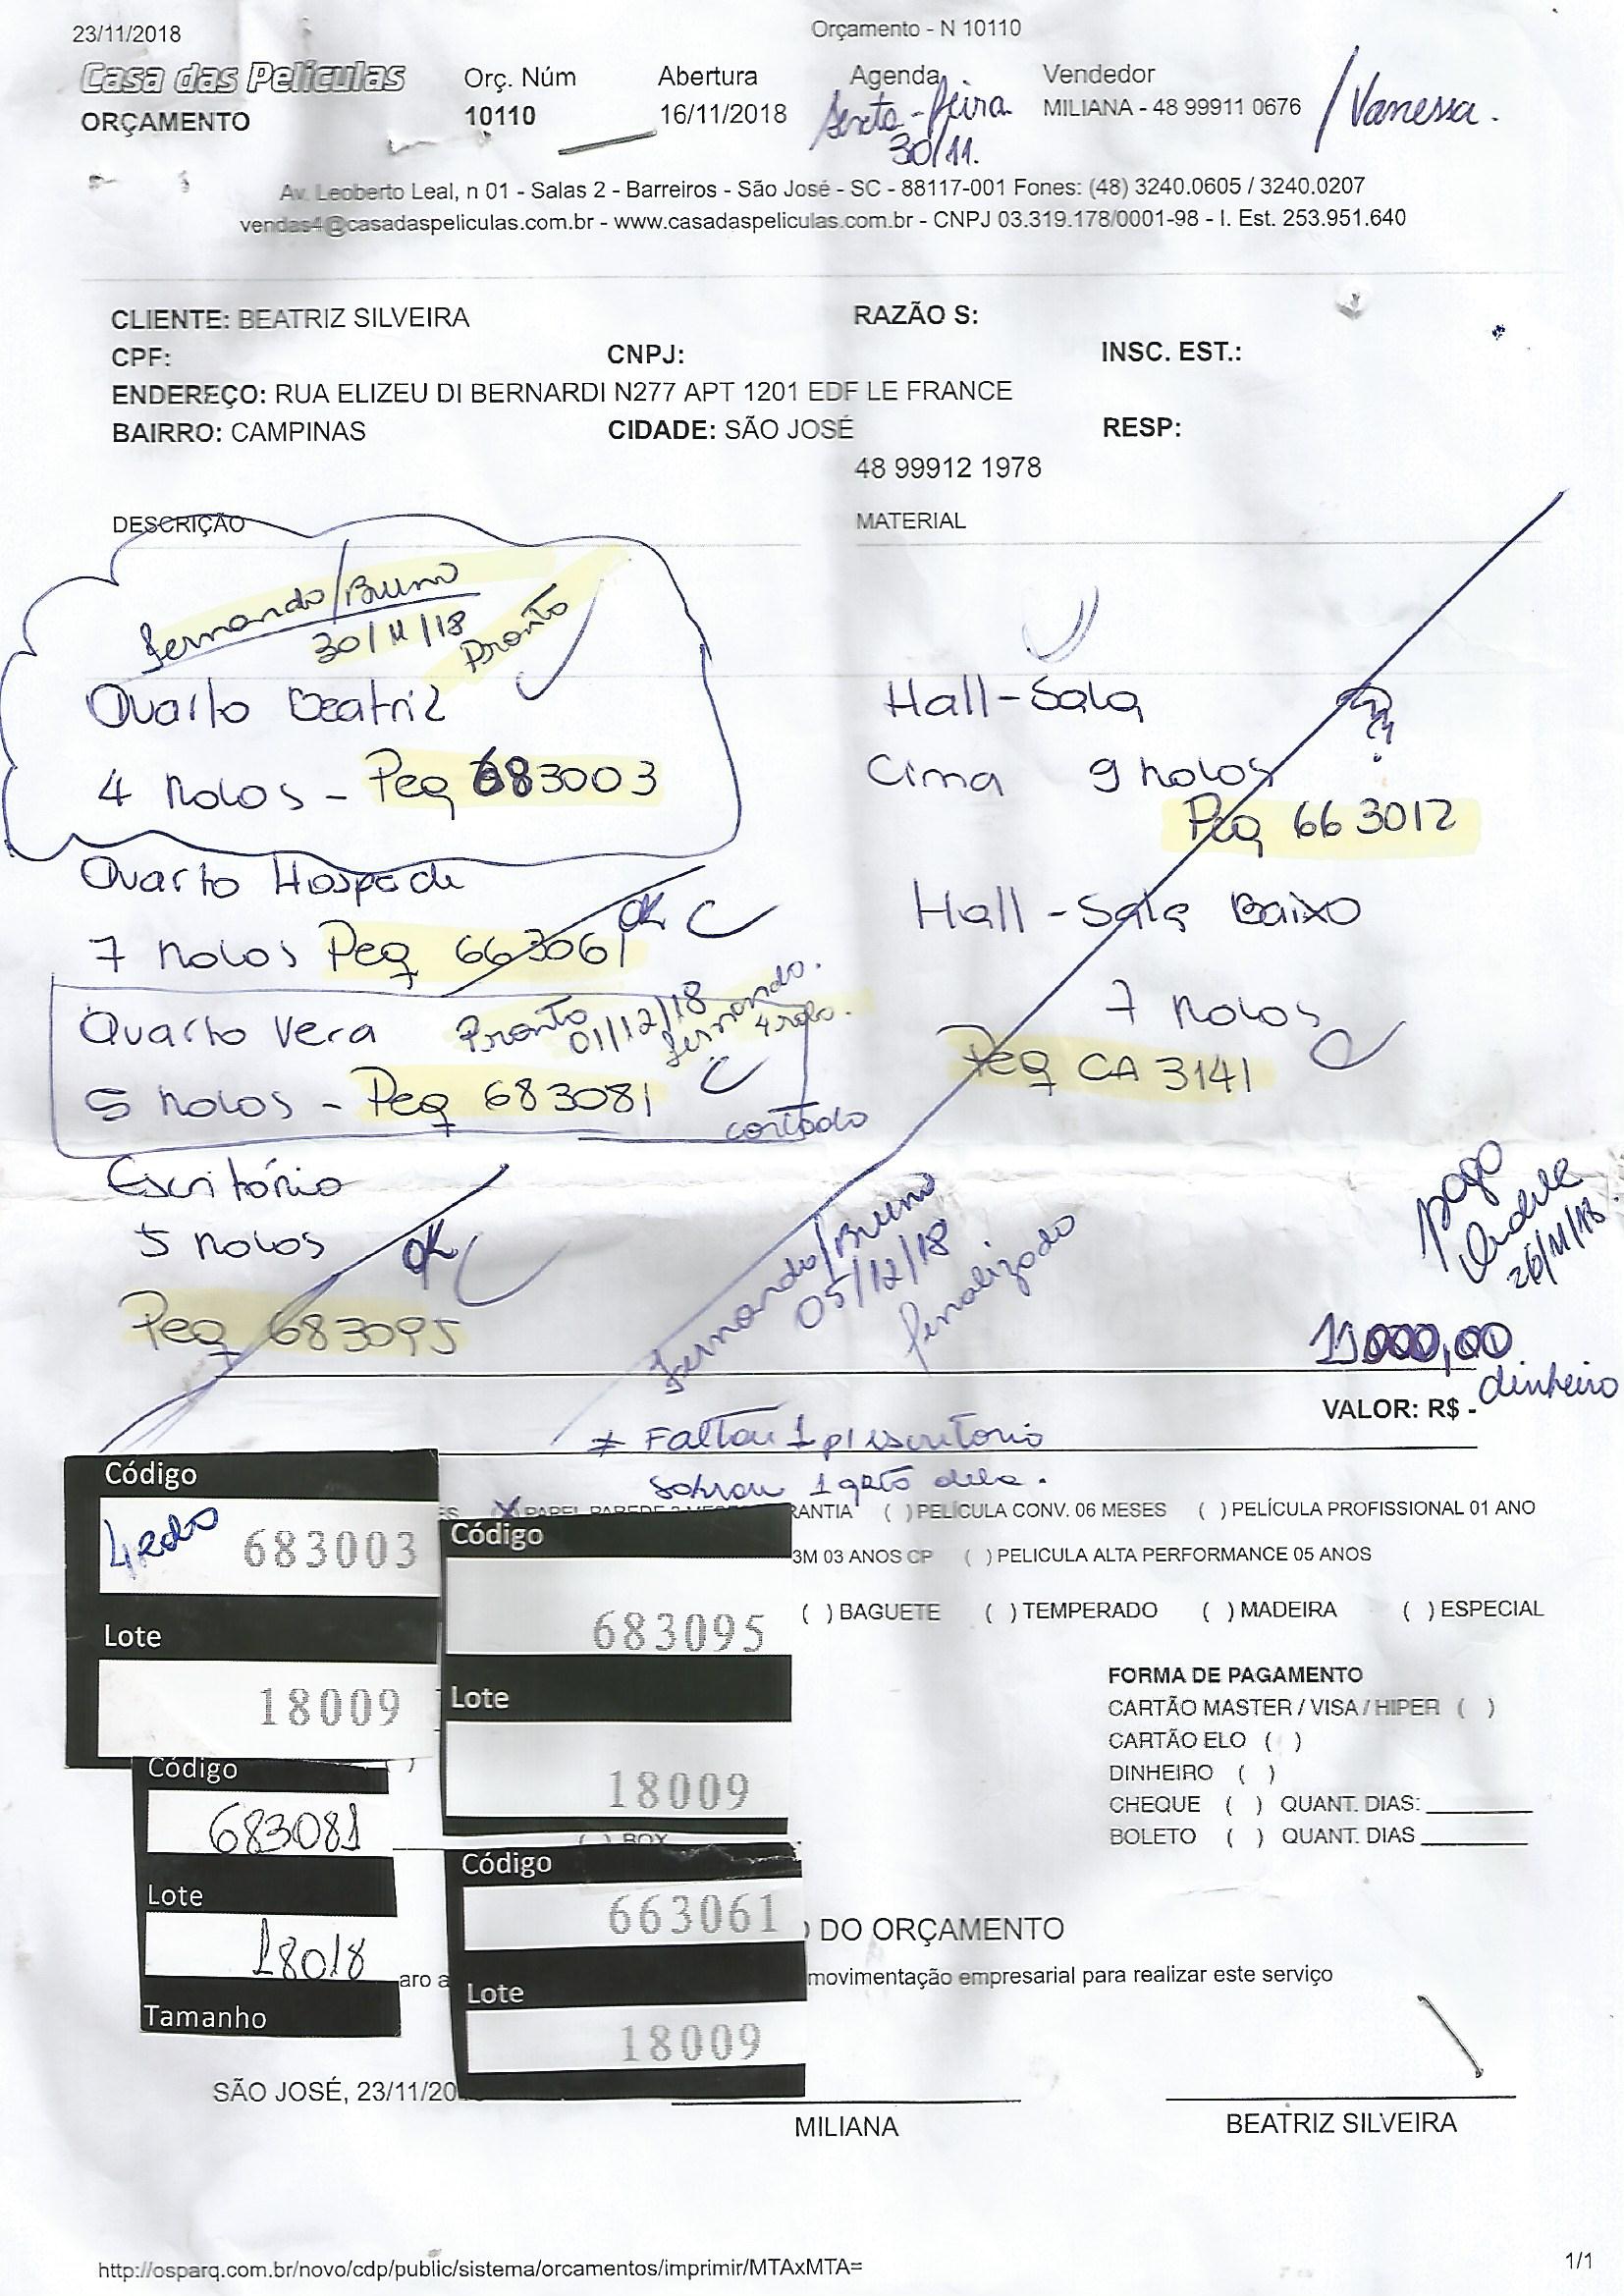 23/11/2018
Orçamento - N 10110
Casa das Películas
Orç. Núm
Abertura
Agenda
Vendedor
ORÇAMENTO
10110
16/11/2018
Sexta-feira
30/11.
MILIANA - 48 99911 0676
/Vanessa.
Av. Leoberto Leal, n 01 - Salas 2 - Barreiros - São José - SC - 88117-001 Fones: (48) 3240.0605 / 3240.0207
vendas4@casadaspeliculas.com.br - www.casadaspeliculas.com.br - CNPJ 03.319.178/0001-98 - I. Est. 253.951.640
CLIENTE: BEATRIZ SILVEIRA
RAZÃO S:
CPF:
CNPJ:
INSC. EST.:
ENDEREÇO: RUA ELIZEU DI BERNARDI N277 APT 1201 EDF LE FRANCE
BAIRRO: CAMPINAS
CIDADE: SÃO JOSÉ
RESP:
48 99912 1978
DESCRIÇÃO
MATERIAL
Fernando/Bruno
30/11/18
Pronto
Quarto Beatriz
4 Rolos - Peq 683003
Quarto Hospede
OK
7 Rolos Peq 663061
Quarto Vera
Pronto
01/12/18
Fernando.
4 rolo.
5 Rolos - Peq 683081
cortado
Escritório
5 Rolos
OK
Peq 683095
Hall-Sala
Cima 9 Rolos
?
Peq 663012
Hall - Sala Baixo
7 Rolos
Peq CA 3141
Fernando/Bruno
05/12/18
finalizado
pago
26/11/18
11000,00
dinheiro
VALOR: R$ -
* Faltou 1 p/ escritorio
Sobrou 1 qrto dela.
X PAPEL PAREDE
RANTIA ( ) PELÍCULA CONV. 06 MESES ( ) PELÍCULA PROFISSIONAL 01 ANO
3M 03 ANOS CP ( ) PELICULA ALTA PERFORMANCE 05 ANOS
( ) BAGUETE ( ) TEMPERADO ( ) MADEIRA ( ) ESPECIAL
Código
4 rolo 683003
Lote
18009
Código
683095
Lote
18009
Código
683081
Lote
18018
Tamanho
( ) BOX
Código
663061
Lote
18009
FORMA DE PAGAMENTO
CARTÃO MASTER / VISA / HIPER ( )
CARTÃO ELO ( )
DINHEIRO ( )
CHEQUE ( ) QUANT. DIAS:
BOLETO ( ) QUANT. DIAS
DO ORÇAMENTO
aro a
movimentação empresarial para realizar este serviço
SÃO JOSÉ, 23/11/20
MILIANA
BEATRIZ SILVEIRA
http://osparq.com.br/novo/cdp/public/sistema/orcamentos/imprimir/MTAxMTA=
1/1